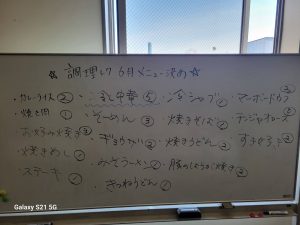 ☆ 調理レク 6月メニュー決め ☆
・カレーライス② ・冷やし中華⑤ ・冷シャブ① ・マーボードウフ②
・焼き肉① ・そーめん③ ・焼きそば① ・チンジャオロース②
・お好み焼き ・ギョウザ② ・焼きうどん② ・すき焼き②
・焼きめし① ・みそラーメン① ・豚のしょうが焼き②
・ステーキ① ・きつねうどん①
Galaxy S21 5G